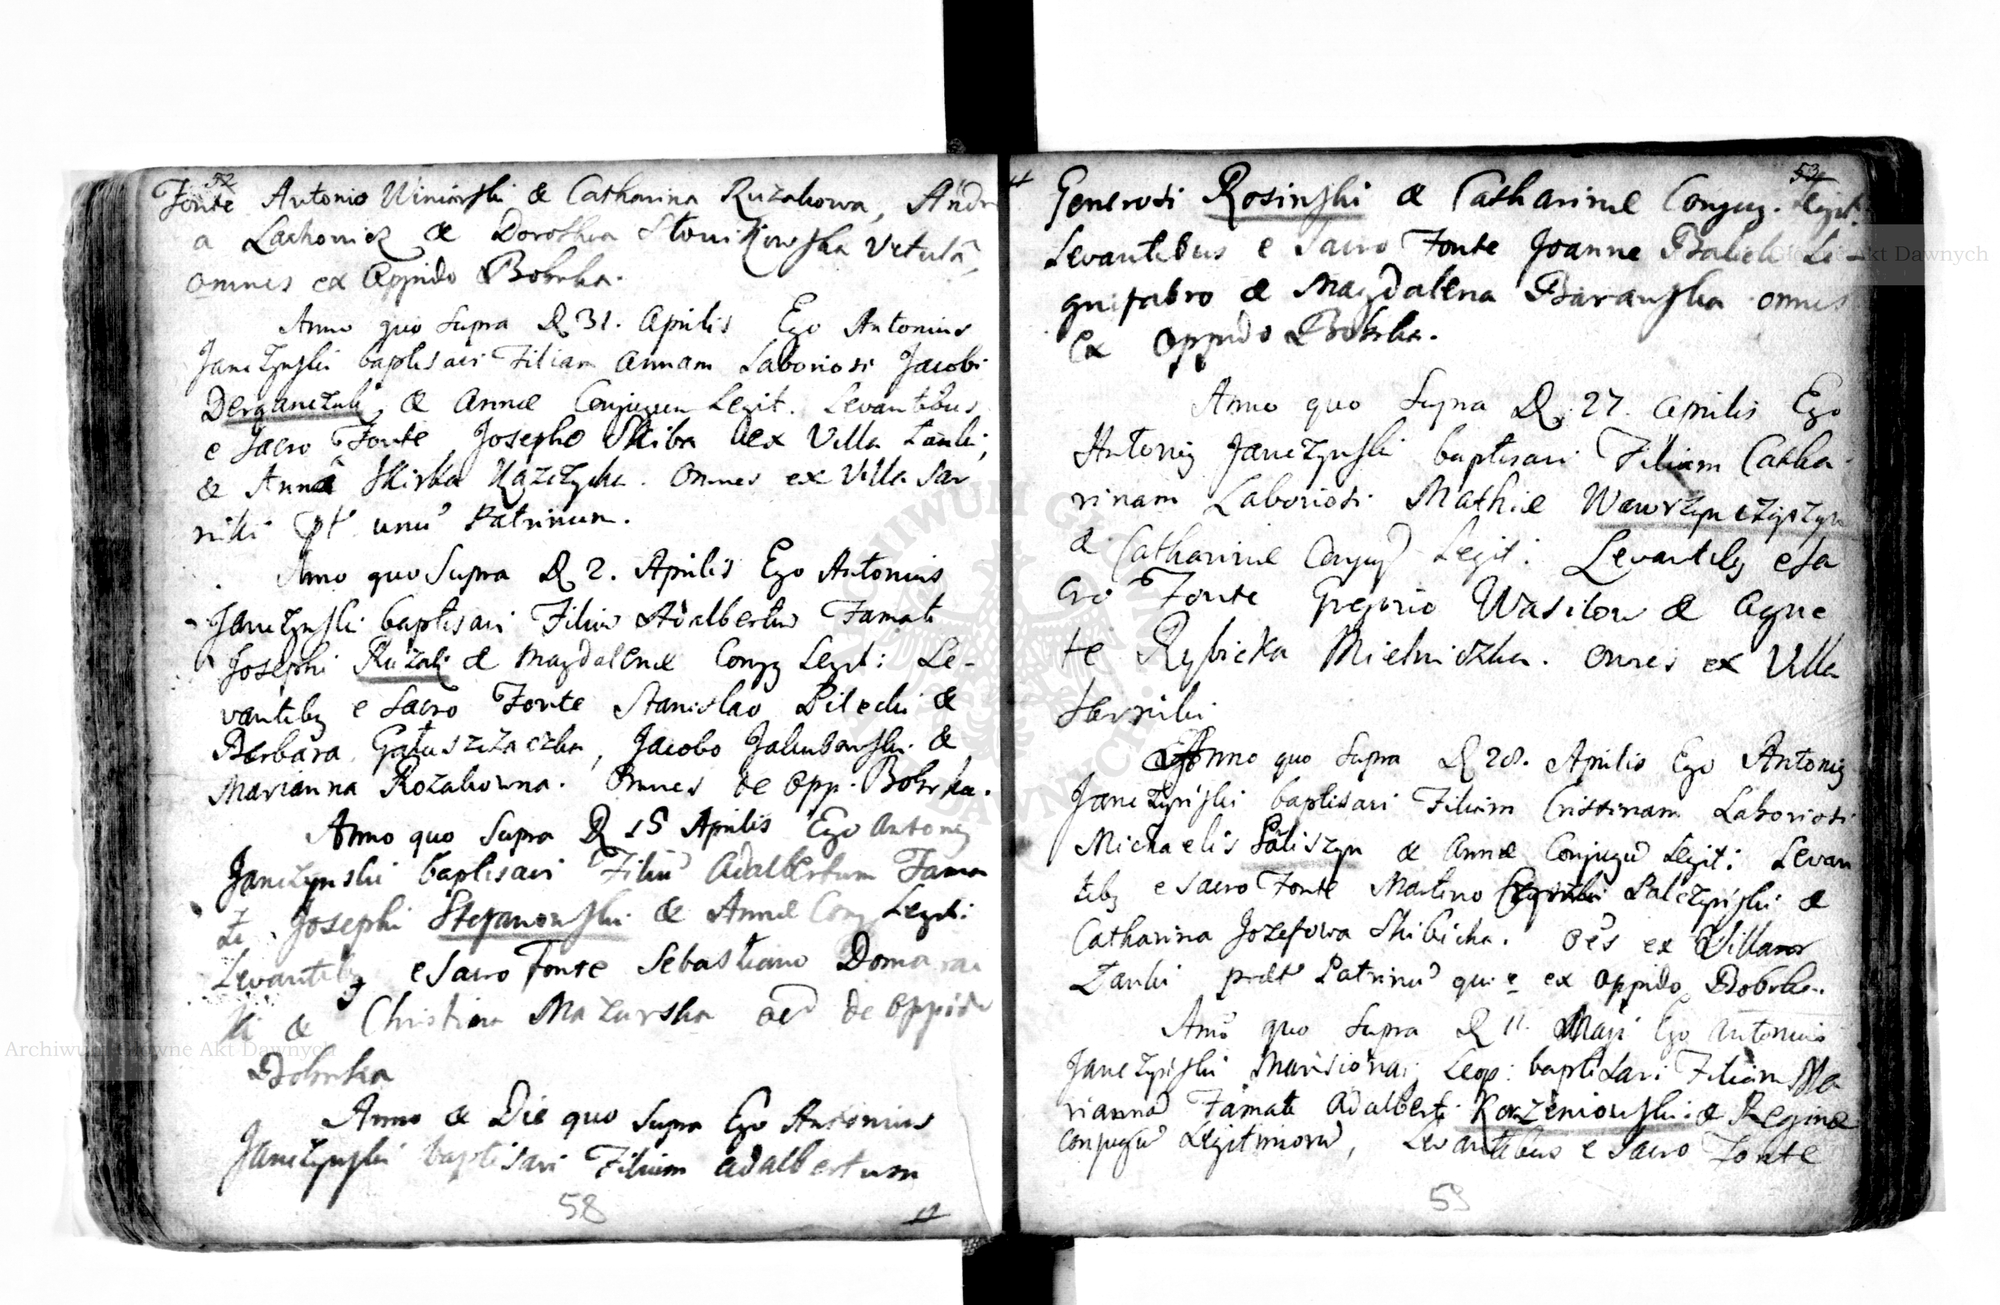 52
Fonte Antonio Winiarski & Catharina Ruzakowa, Andre
a Lachowicz & Dorothea Slowikowska Vetula,
omnes ex Oppido Bobrka.
Anno quo Supra D 31. Aprilis Ego Antonius
Janczynski baptisavi Filiam Annam Laboriosi Jacobi
Derganczuk, & Annæ Conjugum Legit. Levantibus
e Sacro Fonte Josepho Skiba ex Villa Lanki,
& Anna Skirka. omnes ex Villa Sar
niki pt unu Patrinum.
Anno quo Supra D 2. Aprilis Ego Antonius
Janczynski baptisavi Filiu Adalbertu Famati
Josephi Ruzak & Magdalenæ Conjg Legit: Le-
vantibg e Sacro Fonte Stanislao Pilecki &
Barbara Galuszczaczka, Jacobo Jakubowski &
Marianna Rozakowna. Omnes de Opp. Bobrka.
Anno quo Supra D 15 Aprilis Ego Antonig
Janczynski baptisavi Filiu Adalbertum Fama
ti Josephi Stefanowski & Annæ Conjg Legit:
Levantibg e Sacro Fonte Sebastiano Domara
ki & Christina Mazurska oes de Oppido
Bobrka
Anno & Die quo Supra Ego Antonius
Janczynski baptisavi Filium Adalbertum
58
53
Generosi Rosinski & Catharinæ Conjug. Legit.
Levantibus e Sacro Fonte Joanne Babich Li-
gnifabro & Magdalena Baranska omnes
ex Oppido Bobrka.
Anno quo Supra D. 27. Aprilis Ego
Antonig Janczynski baptisavi Filiam Catha-
rinam Laboriosi Mathiæ Wawrzynczyszyn
& Catharinæ Conjug Legit: Levantibg e Sa
cro Fonte Gregorio Wasilow & Agne
te Rybicka Mielniczka. omnes ex Villa
Sarniki.
Anno quo Supra D 28. Aprilis Ego Antonig
Janczynski baptisavi Filiam Cristinam Laboriosi
Michaelis Paliszyn & Annæ Conjugu Legit: Levan
tibg e Sacro Fonte Martino Palczynski &
Catharina Jozefowa Skibicha. oes ex Villa
Lanki præt Patrinu qui e ex Oppido Bobrka.
Anno quo Supra D 11. Maji Ego Antonius
Janczynski Mansionarj Leop: baptisavi Filiam Ma
rianna Famati Adalberti Korzeniowski & Reginæ
conjugu Legitimoru, Levantibus e Sacro Fonte
59
Archiwum Główne Akt Dawnych
Archiwum Główne Akt Dawnych
ARCHIWUM GŁÓWNE AKT DAWNYCH